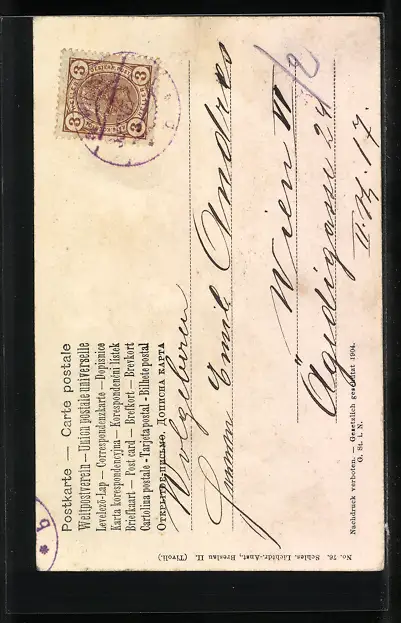 Postkarte — Carte postale
Weltpostverein — Union postale universelle
Levelező-Lap — Correspondenzkarte — Dopisnice
Karta korespondencyjna — Korespondenční lístek
Briefkaart — Post card — Brefkort — Brevkort
Cartolina postale - Tarjeta postal - Bilhete postal
Открытое письмо. Дописна карта
3 3
3 3
Wolgeboren
Herrn Emil Andres
Wien VI
Ägidigasse 24
II. St. 17.
b
No. 76. Schles. Lichtdr.-Anst., Breslau II. (Tivoli.)
Nachdruck verboten. — Gesetzlich geschützt 1904.
G. St. i. N.